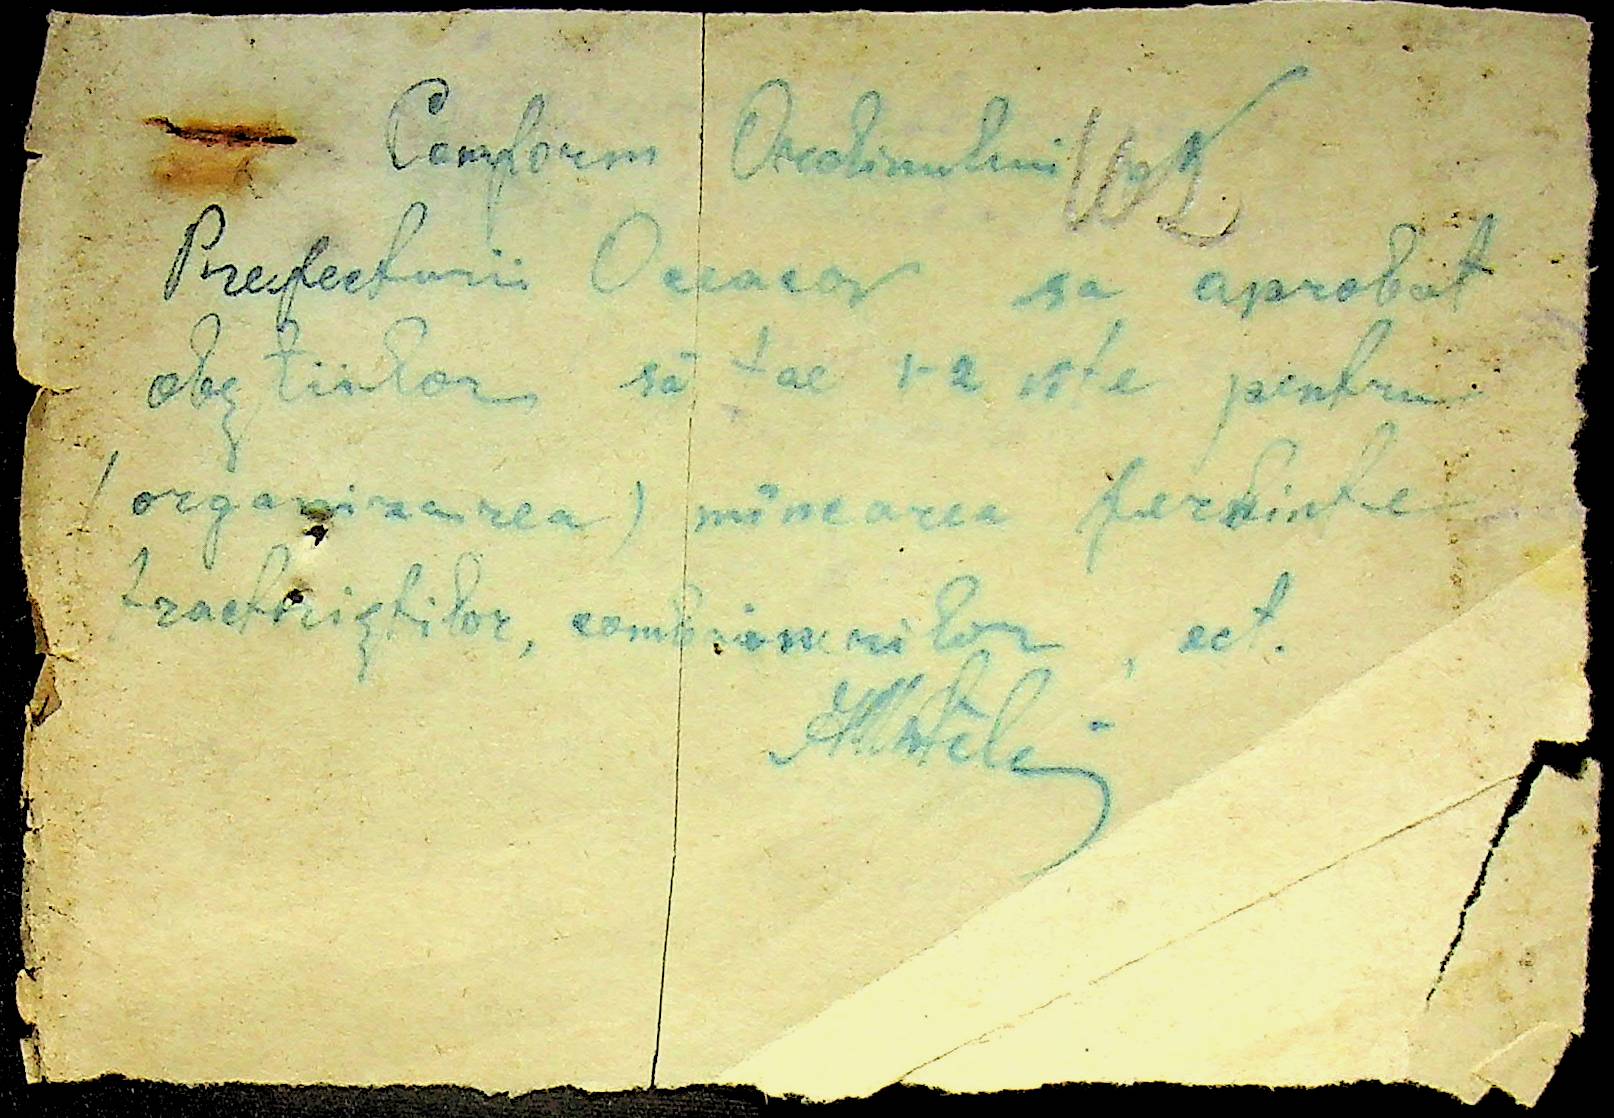 Conform Ordinului
Prefecturii Oceacov sa aprobat
obștiilor să tae 1-2 vite pentru
(organizarea) mîncarea ferbinte
tractriștilor, combainerilor, ect.